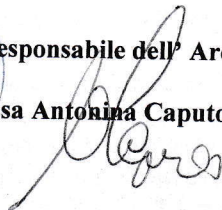 esponsabile dell' Are
sa Antonina Caputo